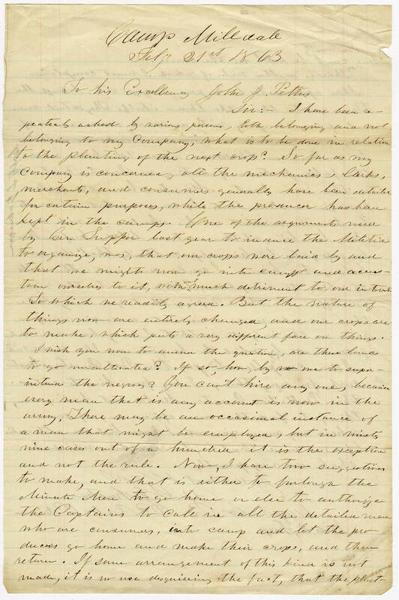 Camp Milldale
Feby 21st 1863
To his Excellency John J. Pettus
Sir:- I have been re-
peatedly asked by various persons, both belonging and not
belonging to my Company, what is to be done in relation
to the planting of the next crop? So far as my
Company is concerned, all the mechanics, Clerks,
merchants, and consumers generally have been detailed
for certain purposes, while the producer has been
kept in the camps. One of the arguments used
by last year to induce the Militia
to organize, was, that our crops were laid by and
that we might now go into camp and accus-
tom ourselves to it, without much detriment to our interests
To which we readily agreed. But the nature of
things now are entirely changed, and our crops are
to make, which puts a very different face on things.
I wish you now to answer the question, are these lands
to go uncultivated? If so, how, by no one to super-
intend the negroes? You can't hire any one, because
every man that is any account is now in the
army. There may be an occasional instance of
a man that might be employed, but in ninety
nine cases out of a hundred it is the exception
and not the rule. Now, I have two suggestions
to make, and that is either to furlough the
Minute Men to go home or else to authorize
the Captains to call in all the detailed men
who are consumers, into camp and let the pro-
ducers go home and make their crops, and then
return. If some arrangement of this kind is not
made, it is no use disguising the fact, that the